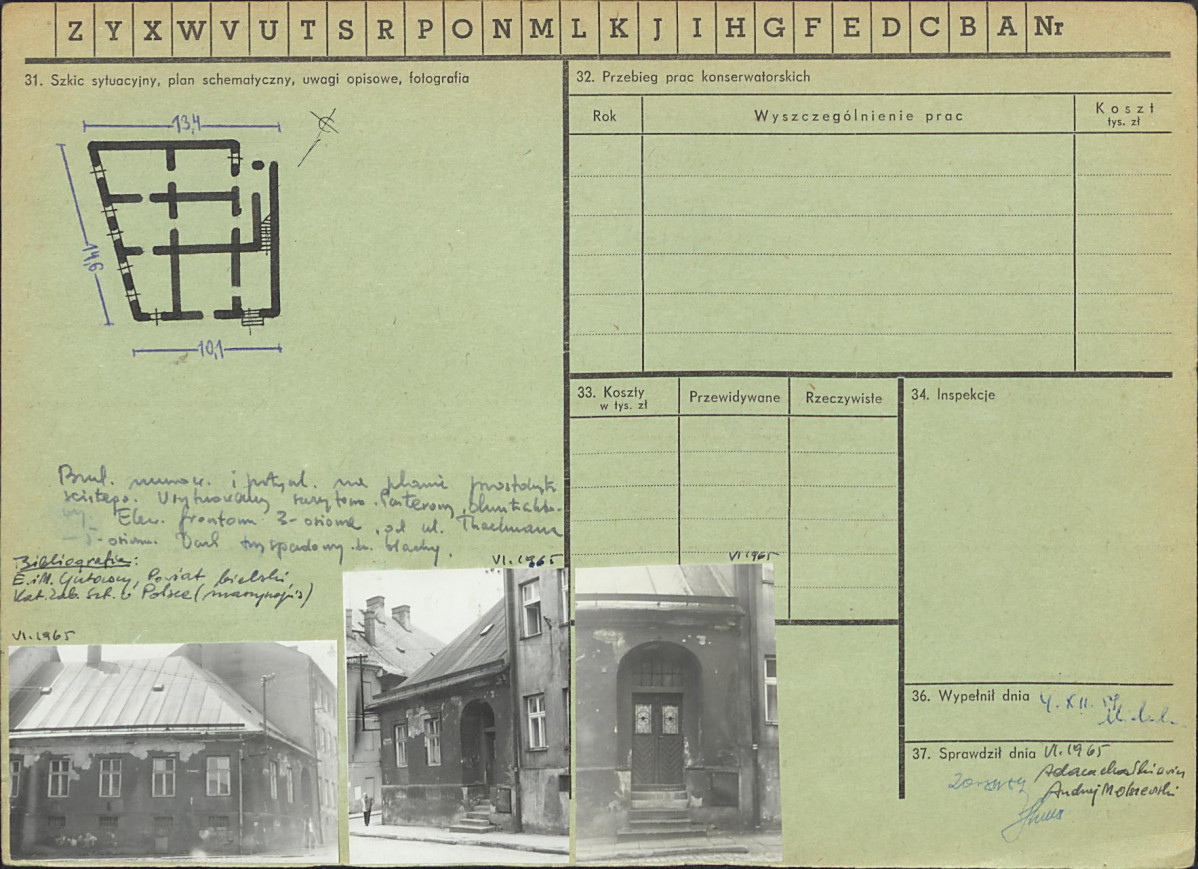 Z Y X W V U T S R P O N M L K J I H G F E D C B A Nr
31. Szkic sytuacyjny, plan schematyczny, uwagi opisowe, fotografia
13,4
14,6
10,1
Bud. murow. i potynk. na planie prostokąta
ścistego. Usytuowany Parterowy,
Elew. frontowa 3-osiowa, od ul. Thaelmanna
5-osiowa. Dach trzspadowy k. blachy.
Bibliografia:
E. i M. Gutowscy, Powiat bielski
Kat. Zab. Szt. w Polsce (maszynopis)
VI. 1965
VI. 1965
VI 1965
32. Przebieg prac konserwatorskich
Rok
Wyszczególnienie prac
Koszt
tys. zł
33. Koszty
w tys. zł
Przewidywane
Rzeczywiste
34. Inspekcje
36. Wypełnił dnia 4. XII. 59
37. Sprawdził dnia VI. 1965
Andrzej